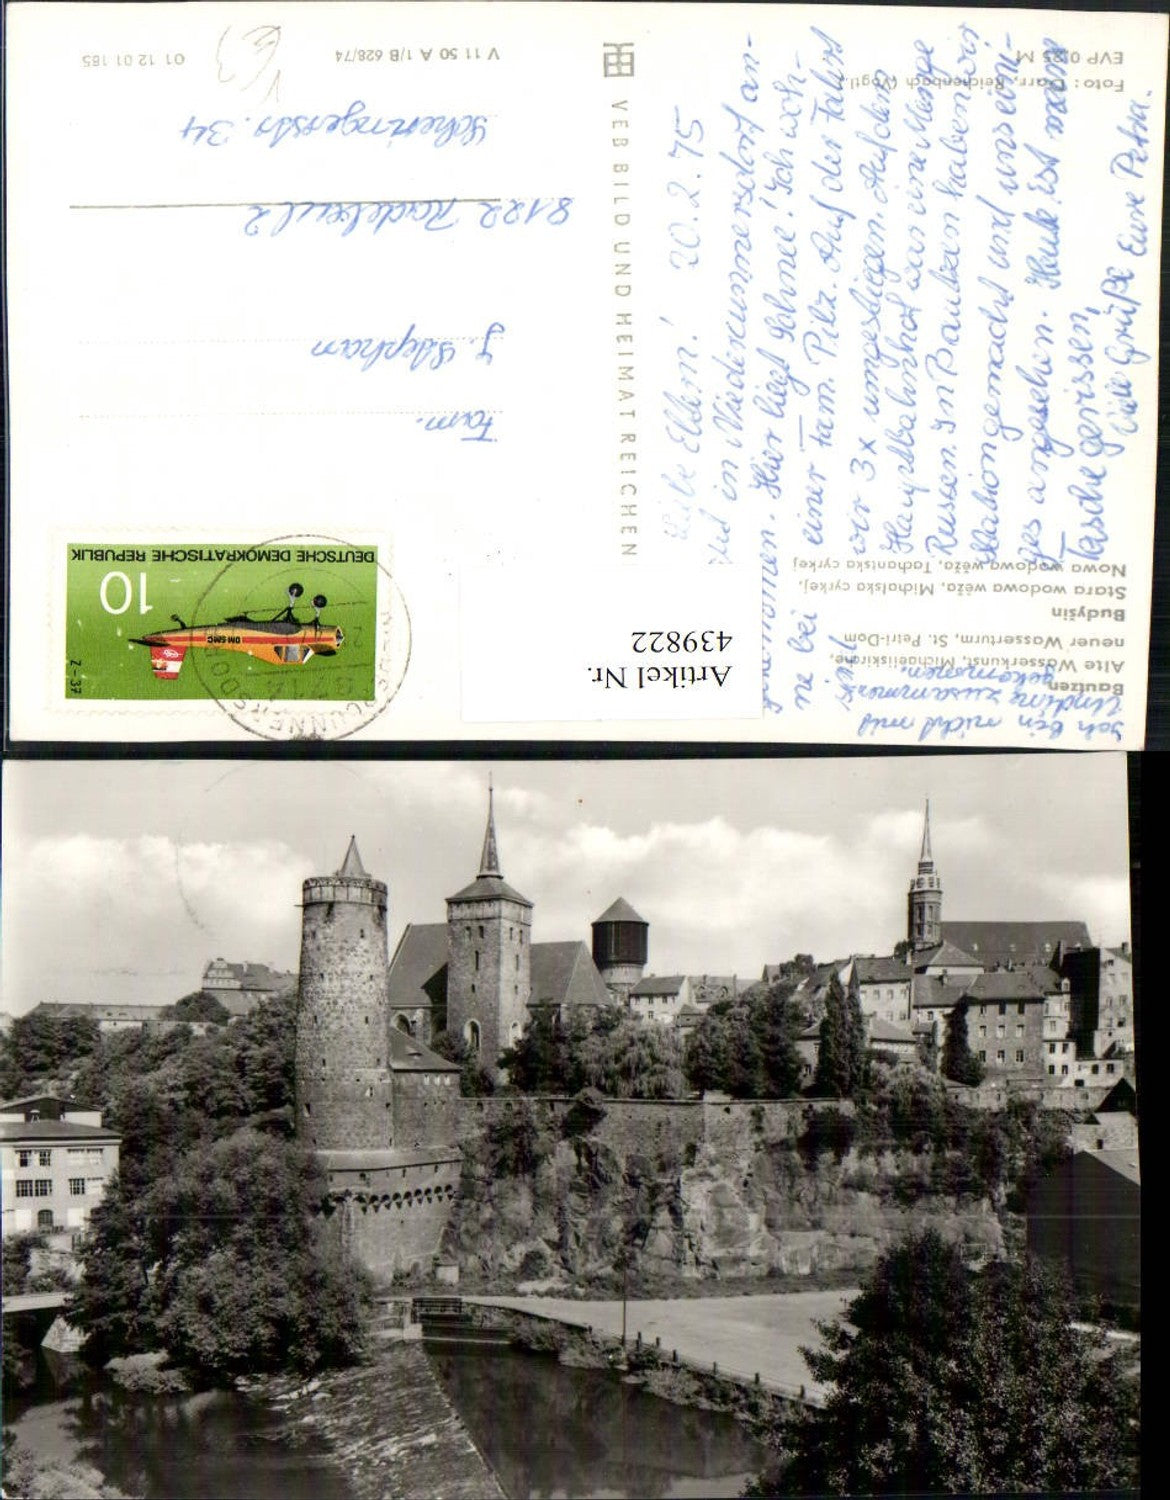 Bautzen
Alte Wasserkunst, Michaeliskirche,
neuer Wasserturm, St. Petri-Dom
Budyšin
Stara wodowa wěža, Michałska cyrkej,
Nowa wodowa wěža, Tachantska cyrkej
Foto: Darr, Reichenbach (Vogtl.)
EVP 0,25 M
V 11 50 A 1/B 628/74
01 12 01 185
VEB BILD UND HEIMAT REICHENBACH
Liebe Eltern! 20.2.75
sind in Niedercunnersdorf an-
gekommen. Hier liegt Schnee! Ich woh-
ne bei einer Fam. Pilz. Auf der Fahrt sind
wir 3x umgestiegen. Auf dem
Hauptbahnhof war eine Menge
Russen. In Bautzen haben wir
Station gemacht und uns eini-
ges angesehen. Heute ist meine
Tasche gerissen,
Viele Grüße Eure Petra.
Ich bin nicht mit
Undine zusammen
gekommen.
DEUTSCHE DEMOKRATISCHE REPUBLIK
10
DM-SMC
Z-37
8714
Fam.
J. Stephan
8122 Radebeul 2
Scheringerstr. 34
€3
Artikel Nr.
439822